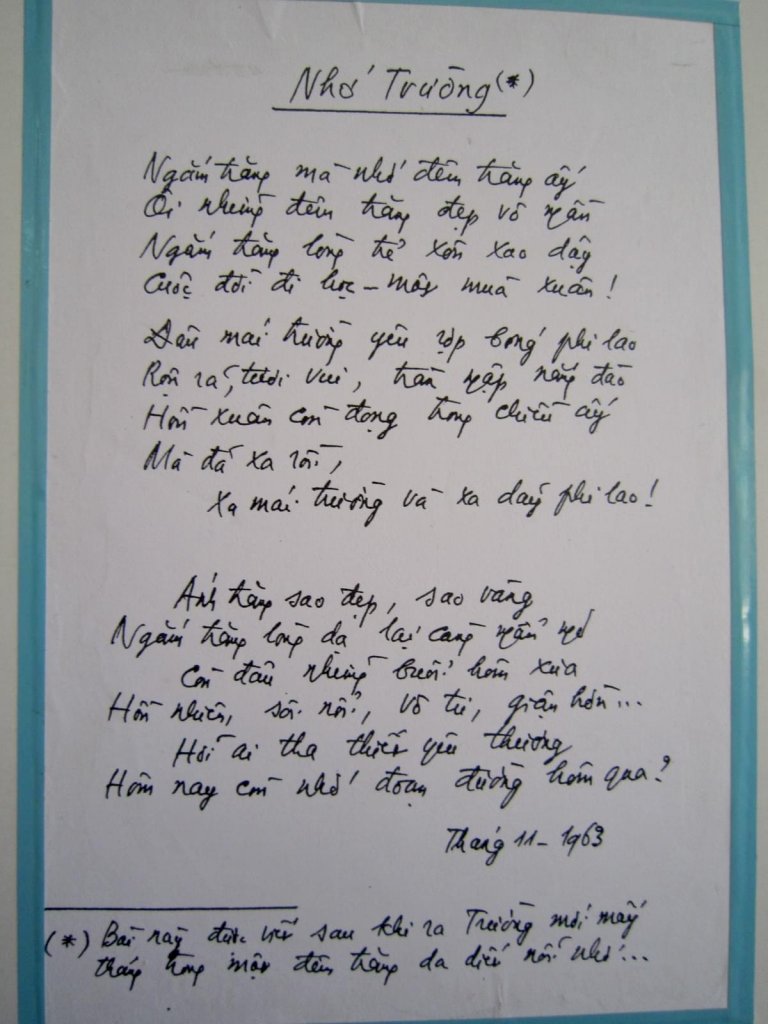 Nhớ Trường (*)
Ngắm trăng mà nhớ đêm trăng ấy
Ôi những đêm trăng đẹp vô ngần
Ngắm trăng lòng trẻ xốn xao dậy
Cuộc đời đi học – mấy mùa xuân!
Đâu mái trường yêu rợp bóng phi lao
Rộn rã, tươi vui, tràn ngập nắng đào
Hồn xuân còn đọng trong chiều ấy
Mà đã xa rồi,
Xa mái trường và xa dãy phi lao!
Ánh trăng sao đẹp, sao vàng
Ngắm trăng lòng dạ lại càng ngẩn ngơ
Còn đâu những buổi hôm xưa
Hồn nhiên, sôi nổi, vô tư, giận hờn...
Hỡi ai tha thiết yêu thương
Hôm nay còn nhớ đoạn đường hôm qua?
Tháng 11 - 1963
(*) Bài này được viết sau khi ra Trường mới mấy
tháng trong một đêm trăng da diết nỗi nhớ...